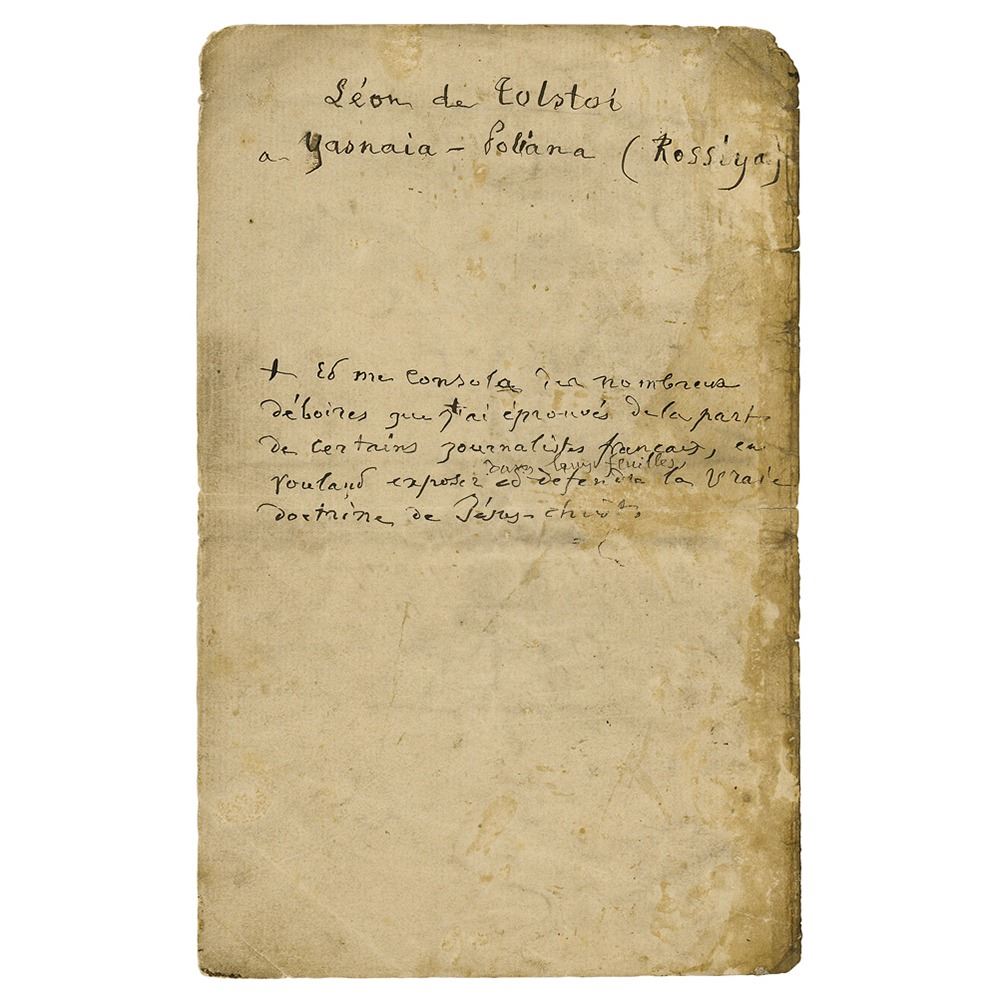 Léon de Tolstoi
a Yasnaia - Poliana (Rossiya)
+ Et me consola des nombreux
déboires que j'ai éprouvés de la part
de certains journalistes français, en
dans leurs feuilles
voulant exposer et défendre la vraie
doctrine de Jésus-christ.